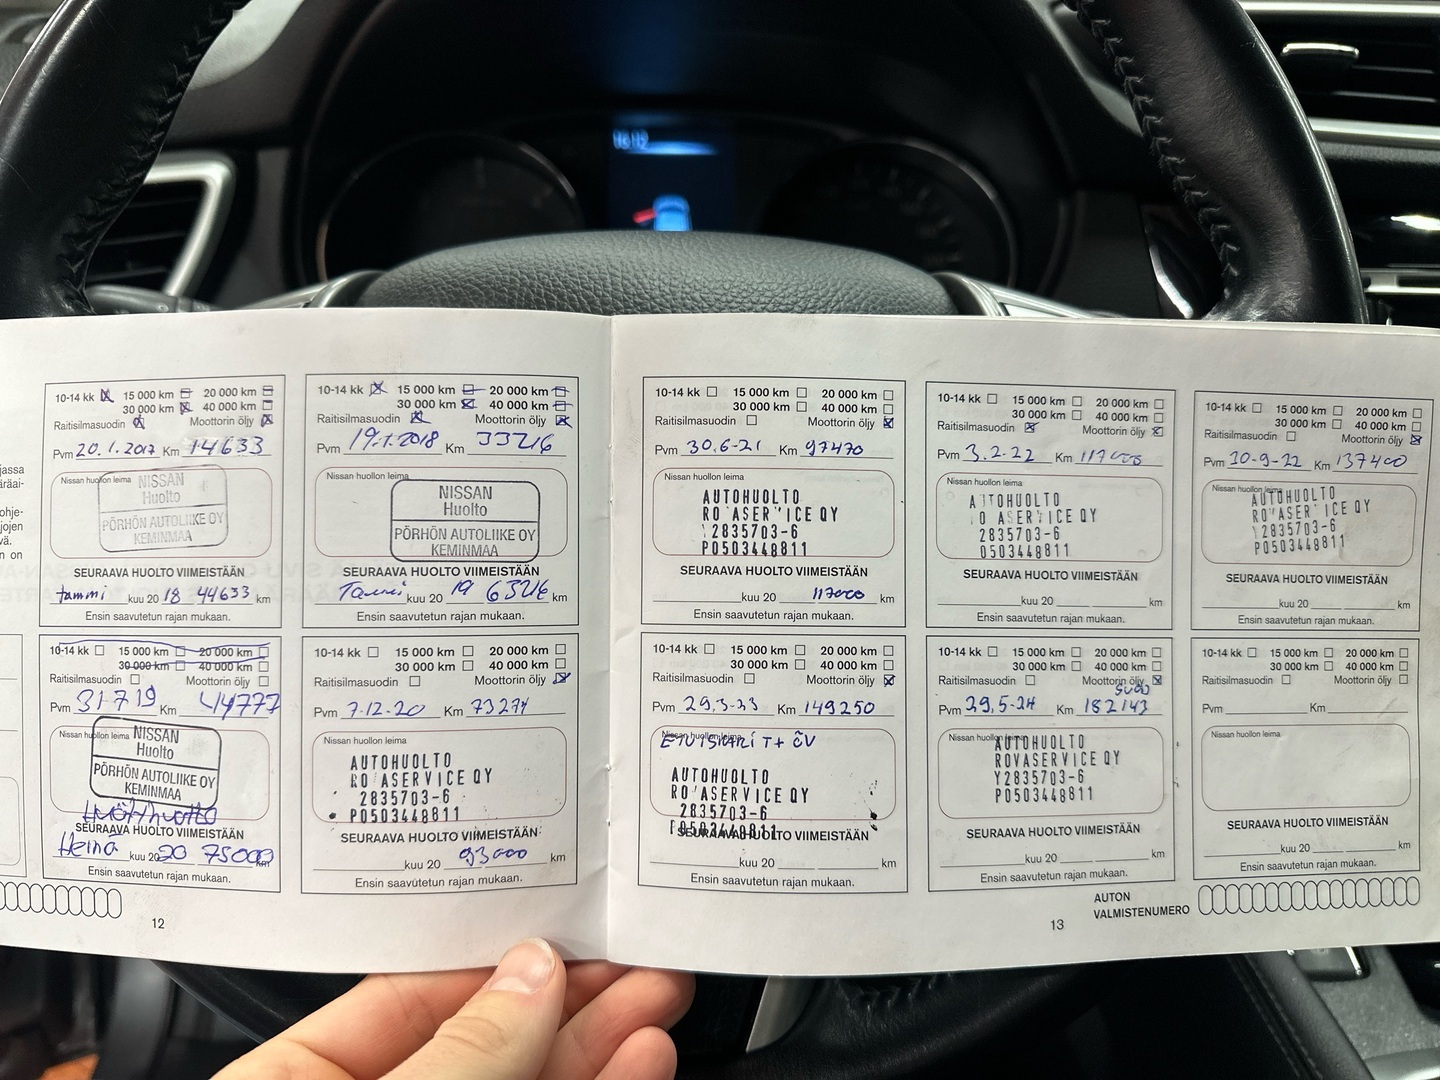 10-14 kk 15 000 km 20 000 km
30 000 km 40 000 km
Raitisilmasuodin Moottorin öljy
Pvm 20.1.2017 Km 14633
Nissan huollon leima
NISSAN
Huolto
PÖRHÖN AUTOLIIKE OY
KEMINMAA
SEURAAVA HUOLTO VIIMEISTÄÄN
tammi kuu 20 18 44633 km
Ensin saavutetun rajan mukaan.
10-14 kk 15 000 km 20 000 km
30 000 km 40 000 km
Raitisilmasuodin Moottorin öljy
Pvm 19.1.2018 Km 33216
Nissan huollon leima
NISSAN
Huolto
PÖRHÖN AUTOLIIKE OY
KEMINMAA
SEURAAVA HUOLTO VIIMEISTÄÄN
Tammi kuu 20 19 63216 km
Ensin saavutetun rajan mukaan.
10-14 kk 15 000 km 20 000 km
30 000 km 40 000 km
Raitisilmasuodin Moottorin öljy
Pvm 31.7.19 Km 44777
Nissan huollon leima
NISSAN
Huolto
PÖRHÖN AUTOLIIKE OY
KEMINMAA
SEURAAVA HUOLTO VIIMEISTÄÄN
Heinä kuu 20 20 75000 km
Ensin saavutetun rajan mukaan.
10-14 kk 15 000 km 20 000 km
30 000 km 40 000 km
Raitisilmasuodin Moottorin öljy
Pvm 7-12-20 Km 73274
Nissan huollon leima
AUTOHUOLTO
RO ASERVICE OY
2835703-6
P0503448811
SEURAAVA HUOLTO VIIMEISTÄÄN
kuu 20 93000 km
Ensin saavutetun rajan mukaan.
12
10-14 kk 15 000 km 20 000 km
30 000 km 40 000 km
Raitisilmasuodin Moottorin öljy
Pvm 30.6-21 Km 97470
Nissan huollon leima
AUTOHUOLTO
RO ASER ICE OY
2835703-6
P0503448811
SEURAAVA HUOLTO VIIMEISTÄÄN
kuu 20 117000 km
Ensin saavutetun rajan mukaan.
10-14 kk 15 000 km 20 000 km
30 000 km 40 000 km
Raitisilmasuodin Moottorin öljy
Pvm 3.2.22 Km
Nissan huollon leima
A TOHUOLTO
O ASER ICE OY
2835703-6
0503448811
SEURAAVA HUOLTO VIIMEISTÄÄN
kuu 20 km
Ensin saavutetun rajan mukaan.
10-14 kk 15 000 km 20 000 km
30 000 km 40 000 km
Raitisilmasuodin Moottorin öljy
Pvm 10-9-22 Km 137400
Nissan huollon leima
AUTOHUOLTO
RO ASER ICE OY
2835703-6
P0503448811
SEURAAVA HUOLTO VIIMEISTÄÄN
kuu 20 km
Ensin saavutetun rajan mukaan.
10-14 kk 15 000 km 20 000 km
30 000 km 40 000 km
Raitisilmasuodin Moottorin öljy
Pvm 29.3-23 Km 149250
Nissan huollon leima
AUTOHUOLTO
RO ASERVICE OY
2835703-6
P0503448811
SEURAAVA HUOLTO VIIMEISTÄÄN
kuu 20 km
Ensin saavutetun rajan mukaan.
10-14 kk 15 000 km 20 000 km
30 000 km 40 000 km
Raitisilmasuodin Moottorin öljy
Pvm 29.5-24 Km 182143
Nissan huollon leima
AUTOHUOLTO
ROVASERVICE OY
Y2835703-6
P0503448811
SEURAAVA HUOLTO VIIMEISTÄÄN
kuu 20 km
Ensin saavutetun rajan mukaan.
10-14 kk 15 000 km 20 000 km
30 000 km 40 000 km
Raitisilmasuodin Moottorin öljy
Pvm Km
Nissan huollon leima
SEURAAVA HUOLTO VIIMEISTÄÄN
kuu 20 km
Ensin saavutetun rajan mukaan.
AUTON
VALMISTENUMERO
13